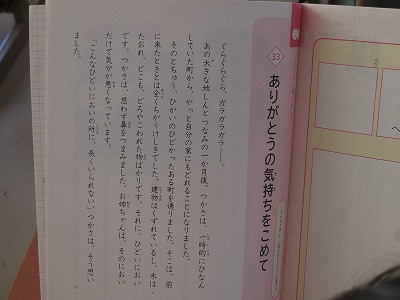 33
ありがとうの気持ちをこめて
ぐらぐらぐら、ガラガラガラ――。
あの大きな地しんとつなみの一か月後。つかさは、一時的にひなん
していた町から、やっと自分の家にもどれることになりました。
そのとちゅう、ひがいのひどかったある町を通りました。そこは、前
に来たときとは全くちがうけしきでした。建物はくずれているし、木は
たおれ、どこも、どろやこわれた物ばかりです。それに、ひどいにおい
です。つかさは、思わず鼻をつまみました。お姉ちゃんは、そのにおい
だけで気分が悪くなっています。
「こんなひどいにおいの所に、長くいられない。」つかさは、そう思い
ました。
②